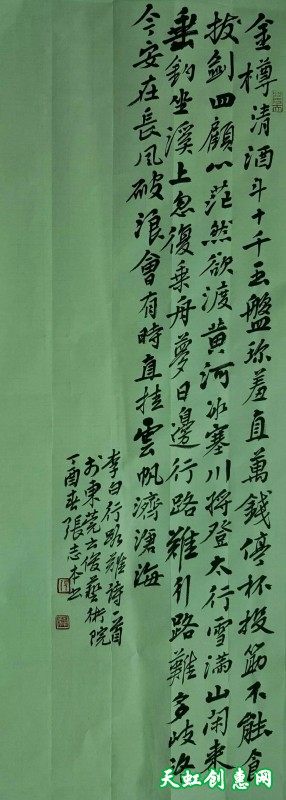 金樽清酒斗十千玉盤珍羞直萬錢停杯投筯不能食
拔劍四顧心茫然欲渡黄河冰塞川將登太行雪滿山閑來
垂釣坐溪上忽復乘舟夢日邊行路難行路難多歧路
今安在長風破浪會有時直挂雲帆濟滄海
李白行路難詩一首
於東莞云俊藝術院
丁酉春張志本书
天虹创惠网